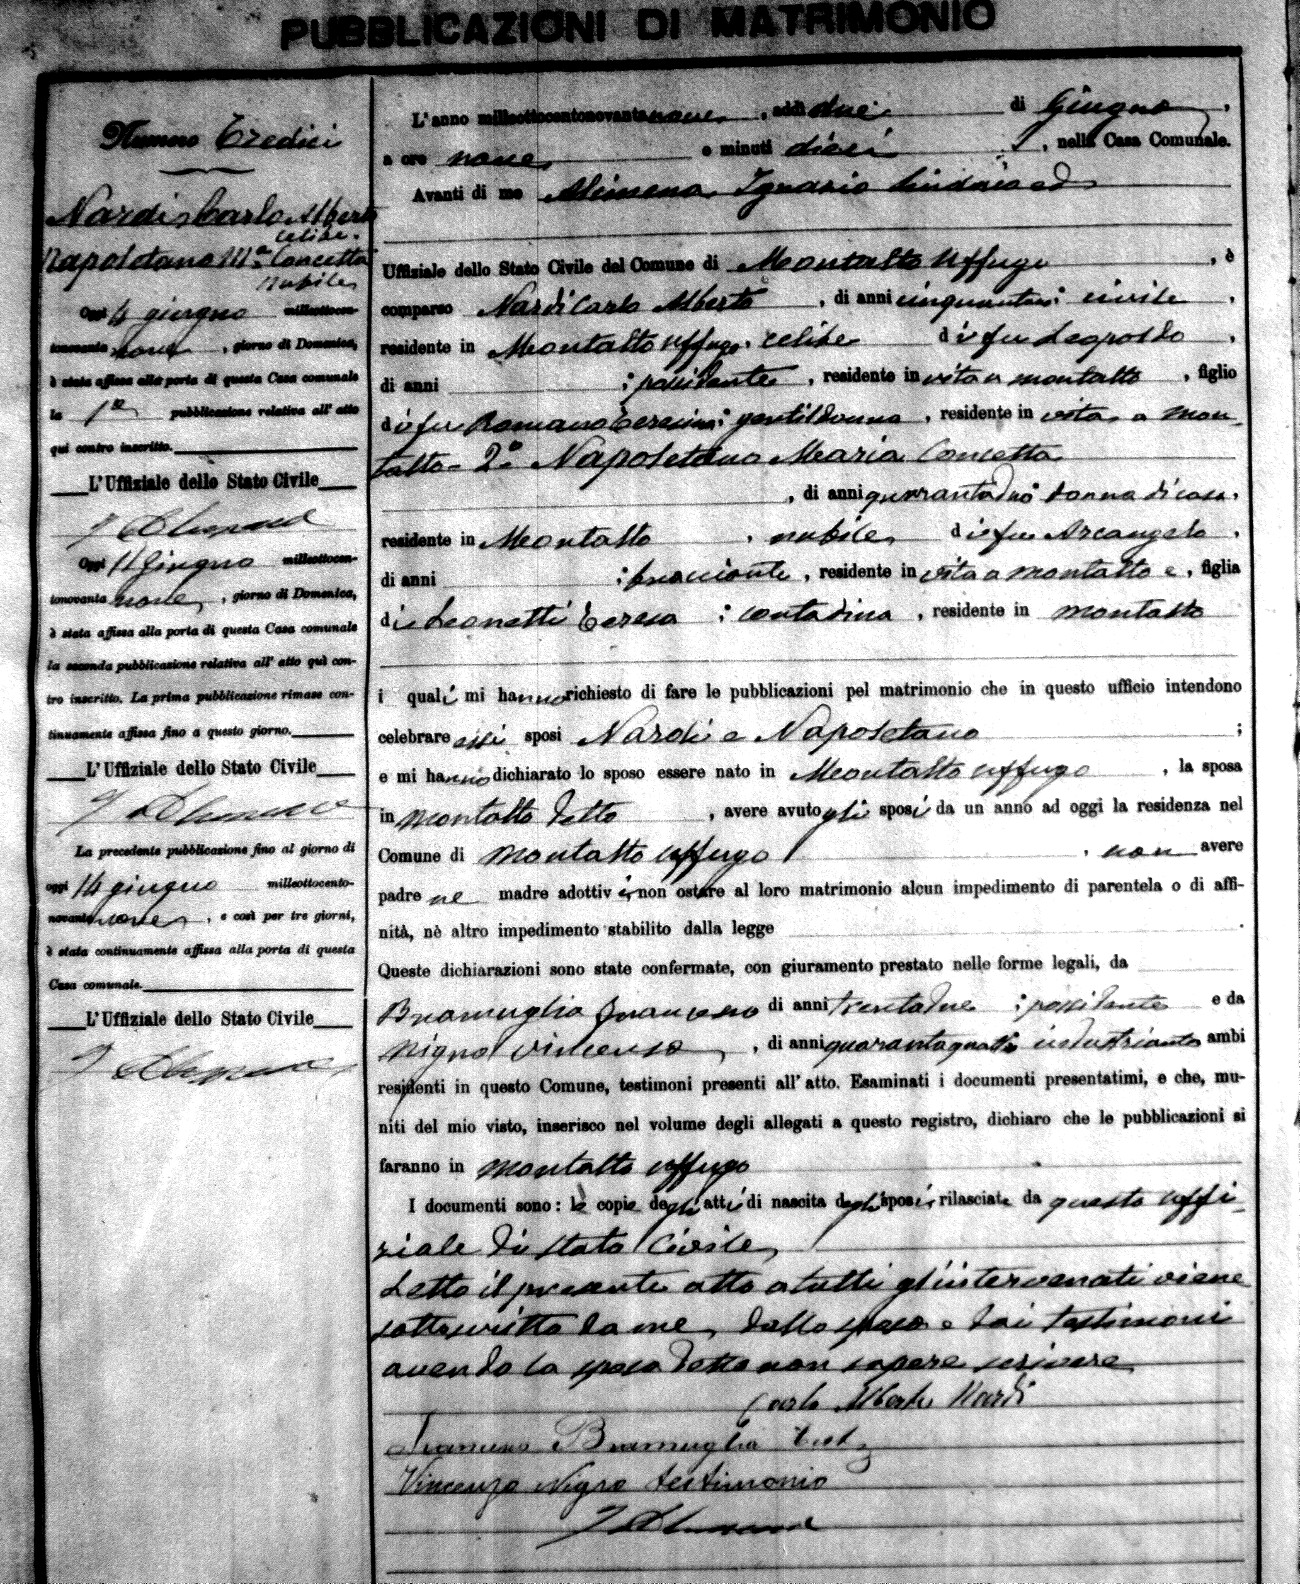 PUBBLICAZIONI DI MATRIMONIO
Numero Tredici
Nardi Carlo Alberto
celibe.
Napoletano Ma Concetta
nubile
Oggi 4 giugno milleottocen-
tonovanta nove, giorno di Domenica,
è stata affissa alla porta di questa Casa comunale
la 1a pubblicazione relativa all' atto
qui contro inscritto.
L'Uffiziale dello Stato Civile
Oggi 11 giugno milleottocen-
tonovanta nove, giorno di Domenica,
è stata affissa alla porta di questa Casa comunale
la seconda pubblicazione relativa all' atto quì con-
tro inscritto. La prima pubblicazione rimase con-
tinuamente affissa fino a questo giorno.
L'Uffiziale dello Stato Civile
La precedente pubblicazione fino al giorno di
oggi 14 giugno milleottocento-
novanta nove, e così per tre giorni,
è stata continuamente affissa alla porta di questa
Casa comunale.
L'Uffiziale dello Stato Civile
L'anno milleottocentonovanta nove, addì due di Giugno,
a ore nove e minuti dieci, nella Casa Comunale.
Avanti di me Alimena Ignazio Sindaco ed
Uffiziale dello Stato Civile del Comune di Montalto Uffugo, è
comparso Nardi Carlo Alberto, di anni civile,
residente in Montalto Uffugo. celibe di fu Leopoldo,
di anni ; possidente, residente in vita a Montalto, figlio
di fu Romano Teresina; gentildonna, residente in vita a Mon-
talto - 2° Napoletano Maria Concetta
, di anni quarantadue donna di casa,
residente in Montalto, nubile, di fu Arcangelo,
di anni ; bracciante, residente in vita a Montalto e, figlia
di Leonetti Teresa ; contadina, residente in Montalto
i quali mi hanno richiesto di fare le pubblicazioni pel matrimonio che in questo ufficio intendono
celebrare essi sposi Nardi e Napoletano ;
e mi hanno dichiarato lo sposo essere nato in Montalto Uffugo, la sposa
in Montalto detto, avere avuto gli sposi da un anno ad oggi la residenza nel
Comune di Montalto Uffugo, non avere
padre ne madre adottivi, non ostare al loro matrimonio alcun impedimento di parentela o di affi-
nità, nè altro impedimento stabilito dalla legge.
Queste dichiarazioni sono state confermate, con giuramento prestato nelle forme legali, da
Bramuglia Francesco di anni trentadue ; possidente e da
Nigro Vincenzo, di anni quarantaquattro industriante ambi
residenti in questo Comune, testimoni presenti all' atto. Esaminati i documenti presentatimi, e che, mu-
niti del mio visto, inserisco nel volume degli allegati a questo registro, dichiaro che le pubblicazioni si
faranno in Montalto Uffugo
I documenti sono: le copie degli atti di nascita degli sposi, rilasciate da questo uffi-
ziale di Stato Civile
Letto il presente atto a tutti gl'intervenuti viene
sottoscritto da me, dallo sposo e dai testimoni
avendo la sposa detto non sapere scrivere
Carlo Alberto Nardi
Francesco Bramuglia test
Vincenzo Nigro testimonio